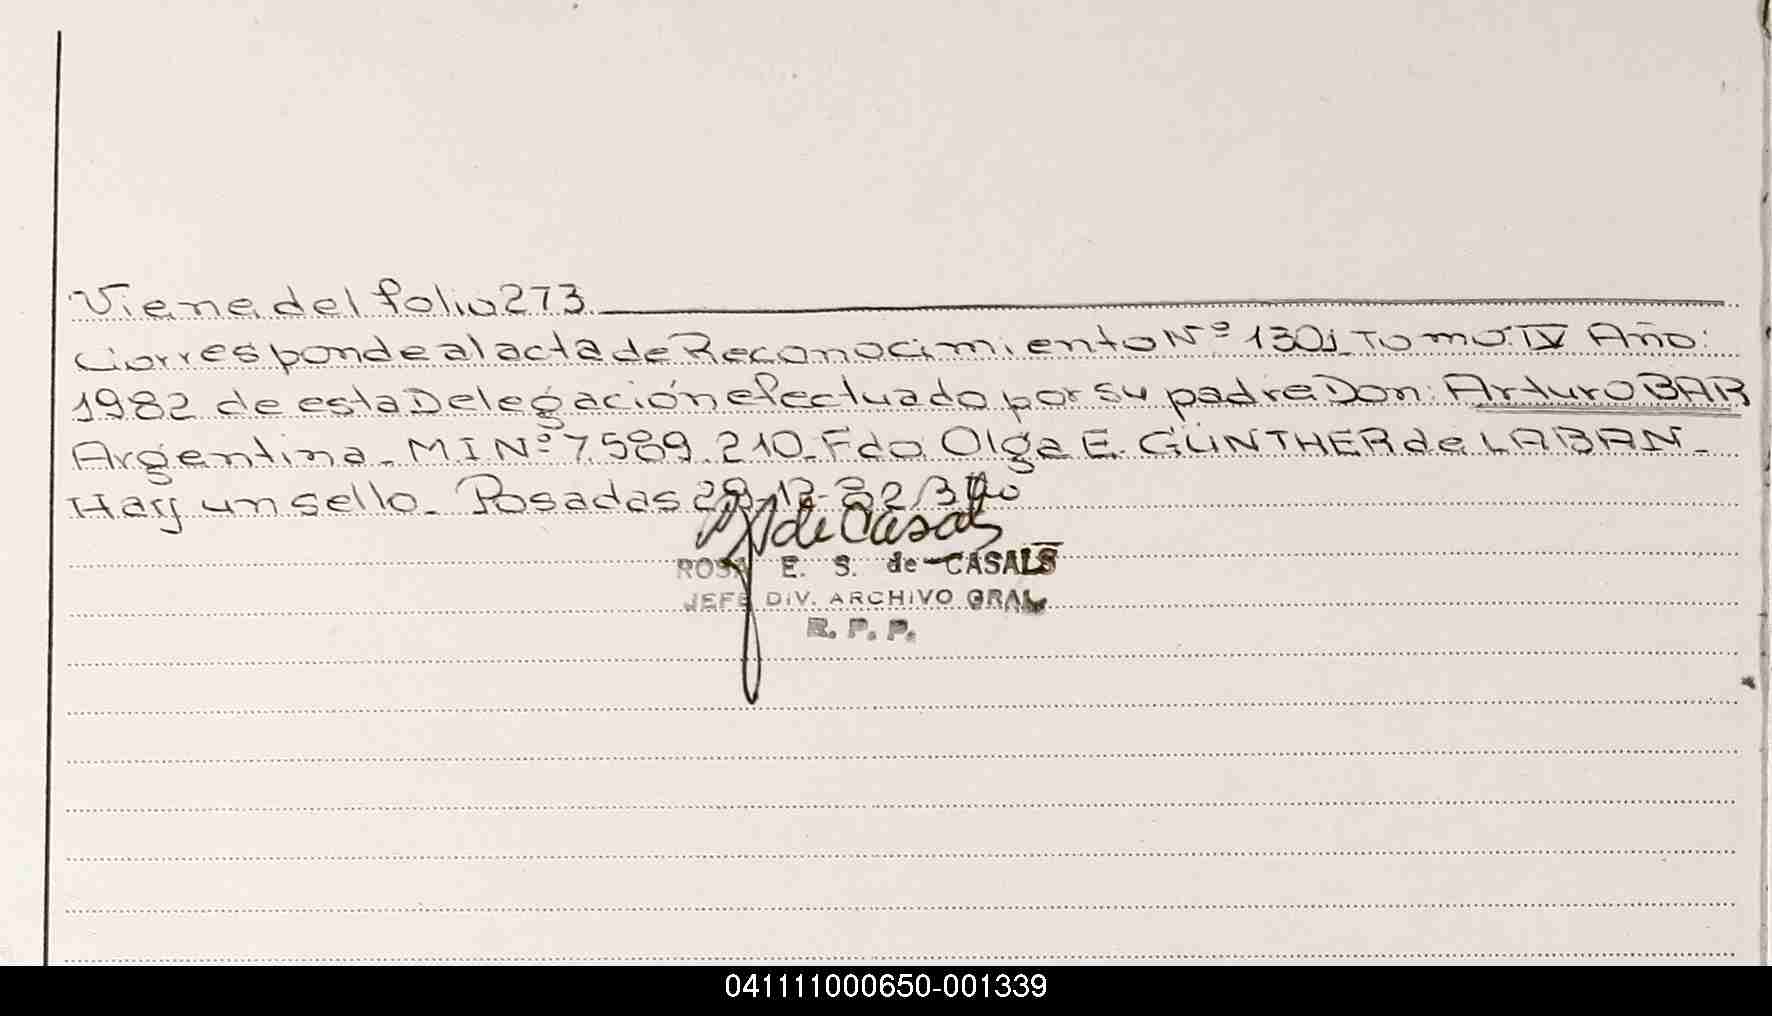 Viene del folio 273
Corresponde al acta de Reconocimiento Nº 1301 Tomo: IV Año:
1982 de esta Delegación efectuado por su padre Don: Arturo BAR
Argentina - MI Nº 7.589.210 - Fdo Olga E. GÜNTHER de LABAN -
Hay un sello - Posadas 29-12-82
de Casals
ROSA E. S. de CASALS
JEFE DIV. ARCHIVO GRAL.
R. P. P.
041111000650-001339